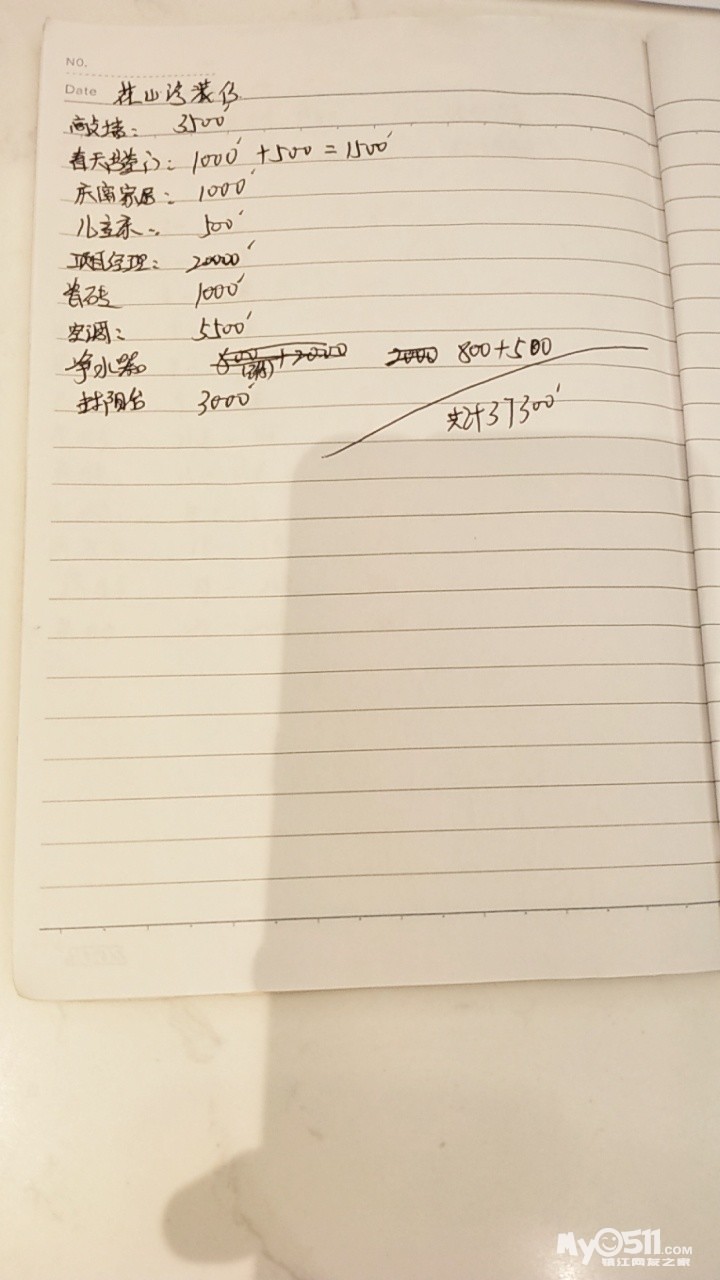 NO.
Date 花山湾装修
敲墙: 3500
春天港垄门: 1000 +500 = 1500
庆富家居: 1000
儿童床: 500
项目经理: 20000
瓷砖 1000
空调: 5500
净水器 2000 800+500
封阳台 3000
共计37300
My0511.COM
镇江网友之家